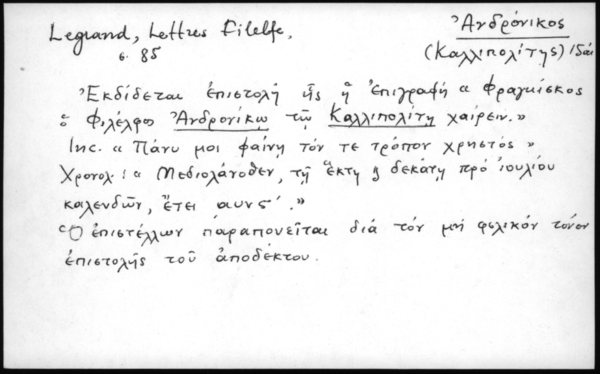 Legrand, Lettres Filelfe,
σ. 85
Ἀνδρόνικος
(Καλλιπολίτης) 15 αἰ
Ἐκδίδεται ἐπιστολή ἧς ἡ ἐπιγραφή « Φραγκίσκος
ὁ Φιλέλφος Ἀνδρονίκῳ τῷ Καλλιπολίτῃ χαίρειν. »
Inc. « Πάνυ μοι φαίνῃ τόν τε τρόπον χρηστός »
Χρονολ: « Μεδιολάνοθεν, τῇ ἕκτῃ δεκάτῃ πρό ἰουλίου
καλενδῶν, ἔτει αυνς΄. »
Ὁ ἐπιστέλλων παραπονεῖται διά τόν μή φιλικόν τόνον
ἐπιστολῆς τοῦ ἀποδέκτου.